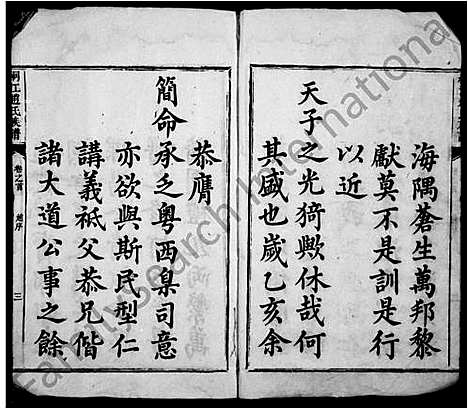 海隅蒼生萬邦黎
獻莫不是訓是行
以近
天子之光猗歟休哉何
其盛也歲乙亥余
恭膺
簡命承乏粵西臬司意
亦欲與斯民型仁
講義祗父恭兄偕
諸大道公事之餘
江趙氏族譜
卷之首
序
三
FamilySearch International